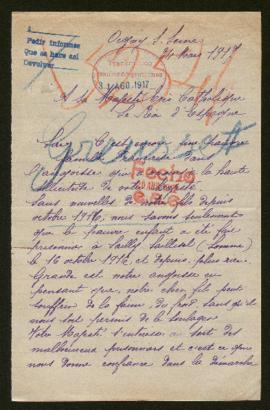 Pedir informes
Que se haga así
Devolver
Orgny S. Seine
24 Mars 1917
31 AGO 1917
A Sa Majesté très Catholique
Le Roi d'Espagne
Sire
C'est une
famille française dans
l'angoisse que
la haute
de votre Majesté
Fecho
Sans nouvelles de notre fils depuis
octobre 1916, nous savons seulement
que le pauvre enfant a été fait
prisonnier à Sailly Saillisel (Somme)
le 16 octobre 1916 et depuis, plus rien.
Grande est notre angoisse en
pensant que notre cher fils peut
souffrir de la faim, du froid, sans qu'il
nous soit permis de le soulager
Votre Majesté s'intéresse au sort des
malheureux prisonniers et c'est ce qui
nous donne confiance dans la démarche